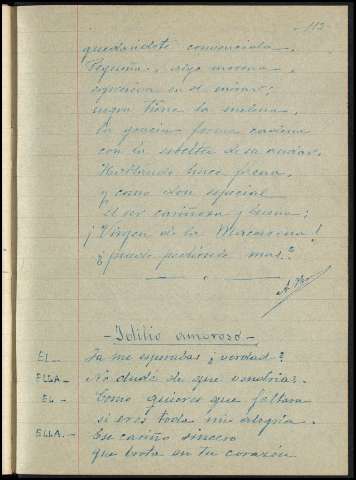 113
quedandote convencida.
Pequeña, algo morena,
expresiva en el mirar;
negra tiene la melena,
la gracia forma cadena
con la esbeltez de su andar.
Hablando hace pena
y como don especial
el ser cariñosa y buena;
¡Virgen de la Macarena!
¿puede pedirse mas?
- Idilio amoroso -
EL - Ya me esperabas ¿verdad?
ELLA - No dudé de que vendrias.
EL - Como quieres que faltara
si eres toda mi alegria.
ELLA. - Ese cariño sincero
que brota en tu corazón